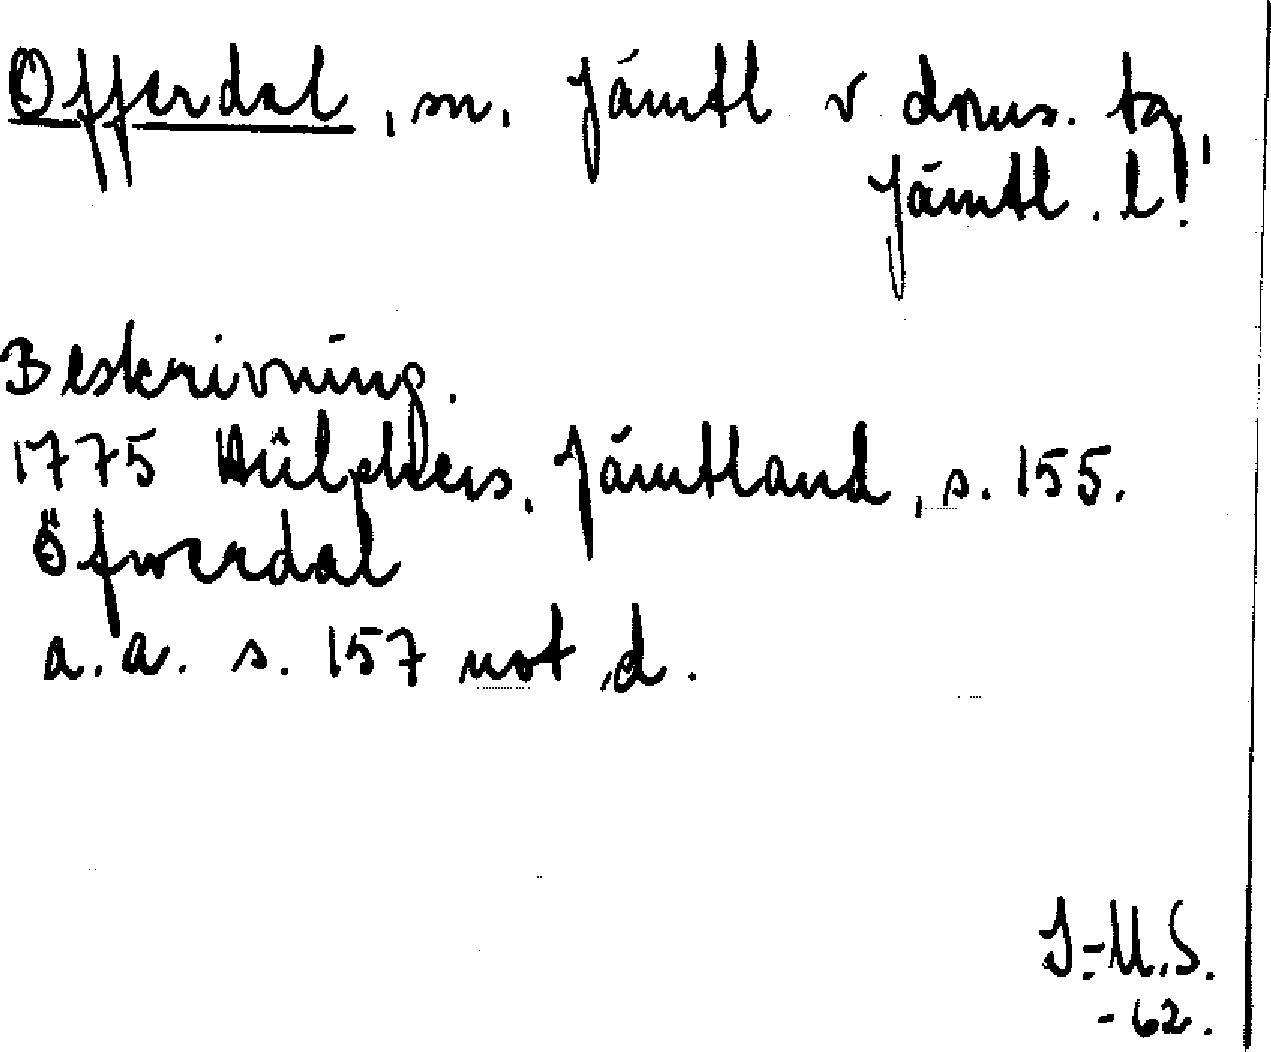 Offerdal, sn, Jämtl v doms. tg,
Jämtl. l.
Beskrivning.
1775 Hülphers, Jämtland, s. 155.
Öfwerdal
a. a. s. 157 not d.
I.-M.S.
-62.